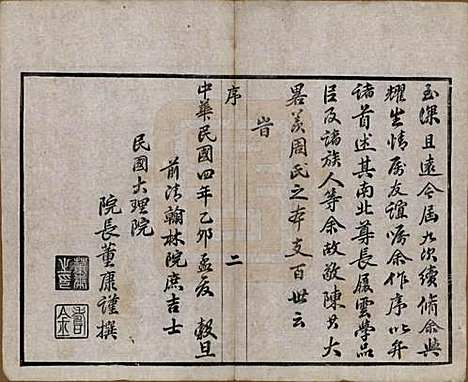 至深且遠今届九次續脩余與
耀生情屬友誼囑余作序以弁
諸首述其南北尊長履雲學品
臣及諸族人等余故敬陳其大
畧羡周氏之本支百世云
旹
序
二
中華民國四年乙卯孟夏 穀旦
前清翰林院庶吉士
民國大理院
院長董康謹撰